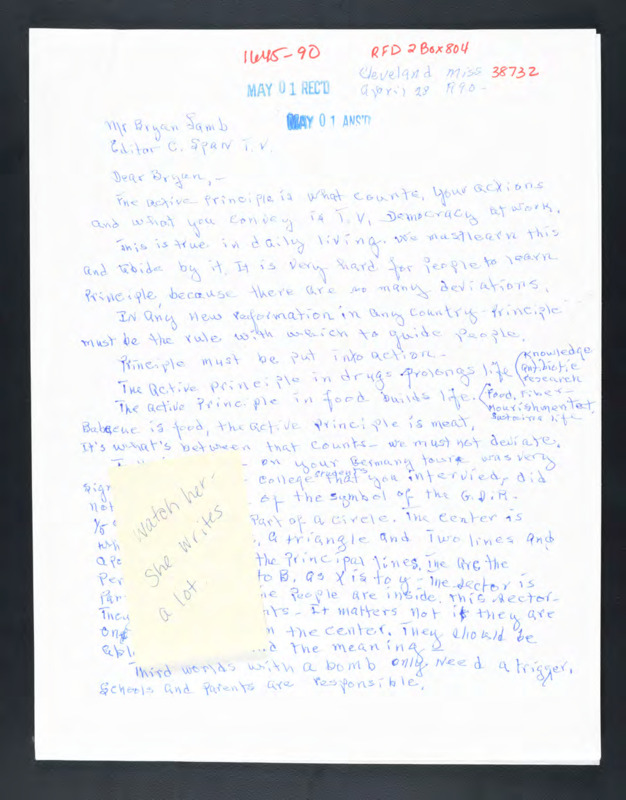 1645-90
RFD 2 Box 804
Cleveland Miss 38732
MAY 01 REC'D
April 28 1990-
MAY 01 ANS'D
Mr Bryan Lamb
Editor C. Span T.V.
Dear Bryan,-
The active Principle is what counts, your actions
and what you convey is T.V. Democracy at work.
This is true in daily living. We must learn this
and abide by it. It is very hard for people to learn
Principle, because there are so many deviations.
In any new reformation in any country - Principle
must be the rule with which to guide people.
Principle must be put into action-
The Active principle in drugs prolongs life (Knowledge
antibiotic
research
The active Principle in food builds life. (Food, Fiber-
nourishment
sustains life
is food, the active principle is meat,
It's what's between that counts- we must not deviate.
on your Germany tour was very
College students that you interviewed, did
not of the symbol of the
Part of a circle. The center is
, a triangle and Two lines and
the Principal lines. The arc the
Per to B, as X is to y - The sector is
Par People are inside. This sector-
They - It matters not if they are
on the center. They should be
the meaning
Third worlds with a bomb only need a trigger.
Schools and Parents are responsible.
Watch her-
She writes
a lot